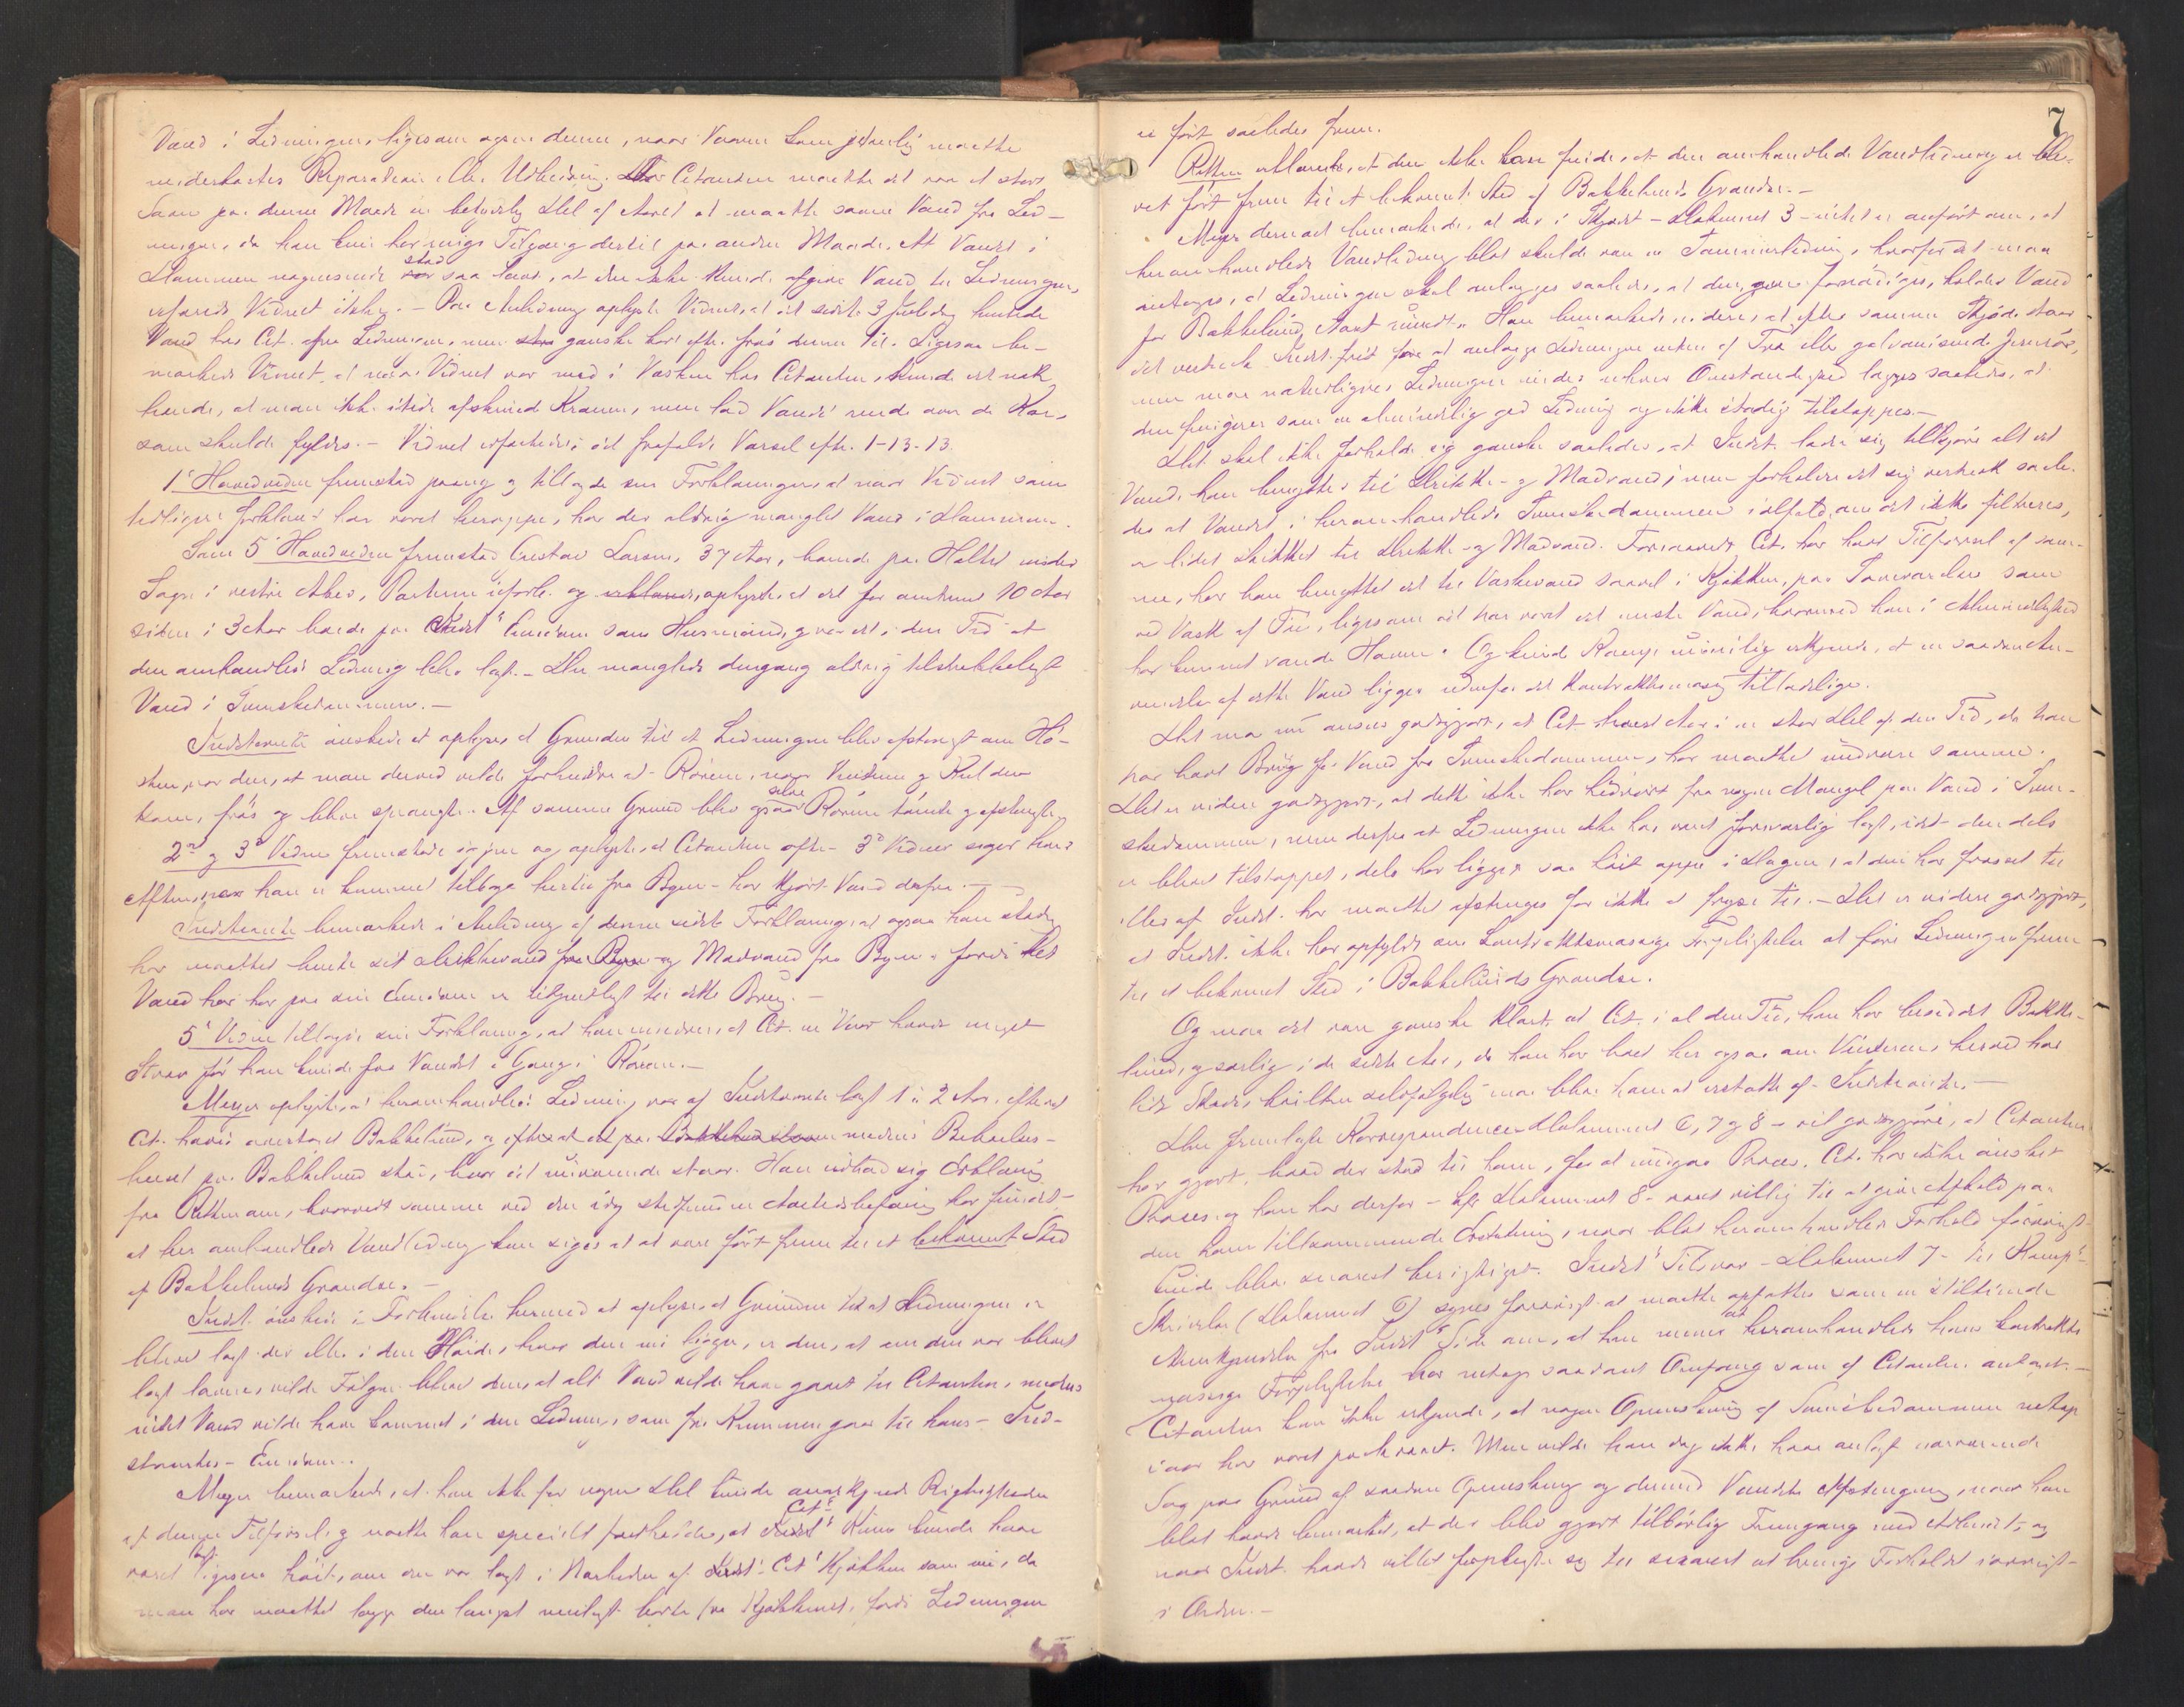 Vand i Ledningen, ligesom ogsaa denne, naar Vaaren kom jevnlig maatte
underkastes Reparation eller Udbedring. For Citanten maatte det være et stort
Savn paa denne Maade en betydelig Del af Aaret at maatte savne Vand fra Led-
ningen, da han kun har ringe Tilgang dertil paa anden Maade. At Vandet i
Dammen nogensinde stod saa lavt, at den ikke kunde afgive Vand til Ledningen,
erfarede Vidnet ikke. - Paa Anledning oplyste Vidnet, at det sidste 3 Juledag hentede
Vand hos Cit. fra Ledningen, men ganske kort efter frøs denne til. Ligesaa be-
mærkede Vidnet, at naar Vidnet var med i Vasken hos Citanten, kunde det nok
hænde, at man ikke itide afskrued Kranen, men lod Vandet rende over de Kar,
som skulde fyldes. - Vidnet erfaredes at frafalde Varsel efter 1-13-13.
1ste Hovedvidne fremstod paany og tillagde sin Forklaring, at naar Vidnet som
tidligere forklaret har været heroppe, har der aldrig manglet Vand i Dammen.
Som 5te Hovedvidne fremstod Gustav Larsen, 37 Aar, boende paa Holtet under
Sogn i vestre Aker, Parterne uforb. og oplyste, at det for omtrent 10 Aar
siden i 3 Aar boede paa Indst.s Eiendom som Husmand, og var det i den Tid at
den omhandlede Ledning blev lagt. - Der manglede dengang aldrig tilstrækkeligt
Vand i Svenskedammen. -
Indstevnte ønskede at oplyse, at Grunden til at Ledningen blev afstengt om Hø-
sten, var den, at man derved vilde forhindre at Rørene, naar Vinteren og Kulden
kom, frøs og bleve sprængte. Af samme Grund blev ogsaa selve Rørene tømte og afstengte.
2det og 3die Vidne fremstode igjen og oplyste, at Citanten ofte - 3die Vidne siger hver
Aften, naar han er kommet tilbage hertil fra Byen - har kjørt Vand derfra. -
Indstevnte bemærkede i Anledning af denne sidste Forklaring, at ogsaa han stadig
har maattet hente sit Drikkevand og Madvand fra Byen, fordi det
Vand han har paa sin Eiendom er utjenligt til dette Brug. -
5te Vidne tillagde sin Forklaring, at han mindes, at Cit. en Vaar havde meget
Strev før han kunde faa Vandet i Gang i Rørene. -
Meyer oplyste, at heromhandlede Ledning var af Indstevnte lagt 1 à 2 Aar efterat
Cit. havde overtaget Bakkelund, og efter at nedens Beboelses-
huset paa Bakkelund stod, hvor det nuværende staar. Han udbad sig Erklæring
fra Retten om, hvorvidt samme ved den idag stedfundne Aastedsbefaring har fundet,
at her omhandlede Vandledning kan siges at være ført frem til et bekvemt Sted
af Bakkelunds Grændse. -
Indst. ønskede i Forbindelse hermed at oplyse, at Grunden til at Ledningen er
bleven lagt der eller i den Høide, hvor den nu ligger, er den, at om den var bleven
lagt lavere, vilde Følgen bleve den, at alt Vand vilde have gaaet til Citanten, medens
intet Vand vilde have kommet i den Ledning, som fra Kummen gaar til hans - Ind-
stevntes - Eiendom.
Meyer bemærkede, at han ikke for nogen Del kunde anerkjende Rigtigheden
af denne Tilførsel, og maatte han specielt fastholde, at Cit.s Kum kunde have
været lagt ligesaa høit, om den var lagt i Nærheden af Cit.s Kjøkken som nu, da
man har maattet lægge den længst muligt borte fra Kjøkkenet, fordi Ledningen
7
er ført saaledes frem.
Retten erklærede, at den ikke kan finde, at den omhandlede Vandledning er ble-
vet ført frem til et bekvemt Sted af Bakkelunds Grændse. -
Meyer dernæst bemærkede, at der i Skjødet - Dokument 3 - intet er anført om, at
heromhandlede Vandledning blot skulde være en Sommerledning, hvorfor det maa
antages, at Ledningen skal anlægges saaledes, at den, gjøres fornødiges, holder Vand
for Bakkelund Aaret rundt. Han bemærkede videre, at efter samme Skjøde staar
det vistnok Indst. frit for at anlægge Ledningen enten af Træ eller galvaniserede Jernrør,
men maa naturligvis Ledningen under enhver Omstændighed lægges saaledes, at
den fungerer som en almindelig god Ledning og ikke stadig tilstoppes. -
Det skal ikke forholde sig ganske saaledes, at Indst. lader sig tilkjøre alt det
Vand, han benytter til Drikke- og Madvand; men forholder det sig vistnok saale-
des at Vandet i heromhandlede Svenskedammen ialfald, om det ikke filtreres,
er lidet skikket til Drikke- og Madvand. Forsaavidt Cit. har havt Tilførsel af sam-
me, har han benyttet det til Vaskevand saavel i Kjøkken, paa Soveværelser som
ved Vask af Tøi, ligesom det har været det eneste Vand, hvormed han i Almindelighed
har kunnet vande Haven. Og kunde Kamp umulig erkjende, at en saadan An-
vendelse af dette Vand ligger udenfor det kontraktsmæssig tilladelige.
Det maa nu ansees godtgjort, at Cit. hvert Aar i en stor Del af den Tid, da han
har havt Brug for Vand fra Svenskedammen, har maattet undvære samme.
Det er videre godtgjort, at dette ikke har hidrørt fra nogen Mangel paa Vand i Sven-
skedammen, men derfra at Ledningen ikke har været forsvarlig lagt, idet den dels
er blevet tilstoppet, dels har ligget saa høit oppe i Dagen, at den har frosset til
eller af Indst. har maattet afstenges for ikke at fryse til. - Det er videre godtgjort,
at Indst. ikke har opfyldt sin kontraktsmæssige Forpligtelse at føre Ledningen frem
til et bekvemt Sted i Bakkelunds Grændse.
Og maa det være ganske klart, at Cit. i al den Tid, han har besiddet Bakke-
lund, og særlig i de sidste Aar, da han har boet her ogsaa om Vinteren, herved har
lidt Skade, hvilken selvfølgelig maa blive ham at erstatte af Indstevnte. -
Den fremlagte Korrespondence - Dokument 6, 7 og 8 - vil godtgjøre, at Citanten
har gjort, hvad der stod til ham, for at undgaa Proces. Cit. har ikke ønsket
Proces, og han har derfor - kfr Dokument 8 - været villig til at give Afkald paa
den ham tilkommende Erstatning, naar blot heromhandlede Forhold forøvrigt
kunde blive snarest berigtiget. Indst.s Tilsvar - Dokument 7 - til Kamp's
Skrivelse (Dokument 6) synes forøvrigt at maatte opfattes som en stiltiende
Anerkjendelse fra Indst.s Side om, at han mener at heromhandlede hans kontrakts-
mæssige Forpligtelse har netop saadant Omfang som af Citanten antaget. -
Citanten kan ikke erkjende, at nogen Oprensking af Svenskedammen netop
iaar har været paakrævet. Men vilde han dog ikke have anlagt nærværende
Sag paa Grund af saadan Oprensking og dermed Vandets Afstengning, naar han
blot havde bemærket, at der blev gjort tilbørlig Fremgang med Arbeidet, og
naar Indst. havde villet forpligte sig til snarest at bringe Forholdet iøvrigt
i Orden. -